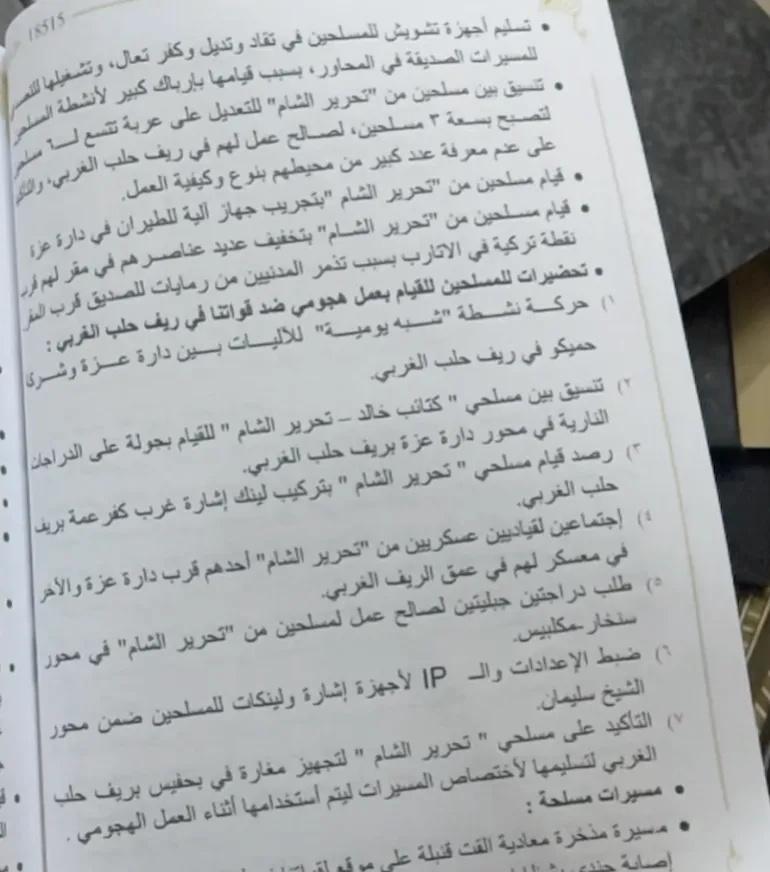 18515
• تسليم أجهزة تشويش للمسلحين في تقاد وتديل وكفر تعال، وتشغيلها
للمسيرات الصديقة في المحاور، بسبب قيامها بإرباك كبير لأنشطة
• تنسيق بين مسلحين من "تحرير الشام" للتعديل على عربة تتسع لـ٦
لتصبح بسعة ٣ مسلحين، لصالح عمل لهم في ريف حلب الغربي،
على عدم معرفة عدد كبير من محيطهم بنوع وكيفية العمل.
• قيام مسلحين من "تحرير الشام" بتجريب جهاز آلية للطيران في دارة عزة
• قيام مسلحين من "تحرير الشام" بتخفيف عديد عناصرهم في مقر لهم قرب
نقطة تركية في الاتارب بسبب تذمر المدنيين من رمايات للصديق قرب
• تحضيرات للمسلحين للقيام بعمل هجومي ضد قواتنا في ريف حلب الغربي :
١) حركة نشطة "شبه يومية" للآليات بين دارة عزة وشرق
حميكو في ريف حلب الغربي.
٢) تنسيق بين مسلحي " كتائب خالد – تحرير الشام " للقيام بجولة على الدراجات
النارية في محور دارة عزة بريف حلب الغربي.
٣) رصد قيام مسلحي " تحرير الشام " بتركيب لينك إشارة غرب كفر عمة بريف
حلب الغربي.
٤) إجتماعين لقياديين عسكريين من "تحرير الشام" أحدهم قرب دارة عزة والآخر
في معسكر لهم في عمق الريف الغربي.
٥) طلب دراجتين جبليتين لصالح عمل لمسلحين من "تحرير الشام" في محور
سنخار-مكلبيس.
٦) ضبط الإعدادات والـ IP لأجهزة إشارة ولينكات للمسلحين ضمن محور
الشيخ سليمان.
٧) التأكيد على مسلحي " تحرير الشام " لتجهيز مغارة في بحفيس بريف حلب
الغربي لتسليمها لأختصاص المسيرات ليتم أستخدامها أثناء العمل الهجومي .
• مسيرات مسلحة :
• مسيرة مذخرة معادية القت قنبلة على موقع
إصابة جندي